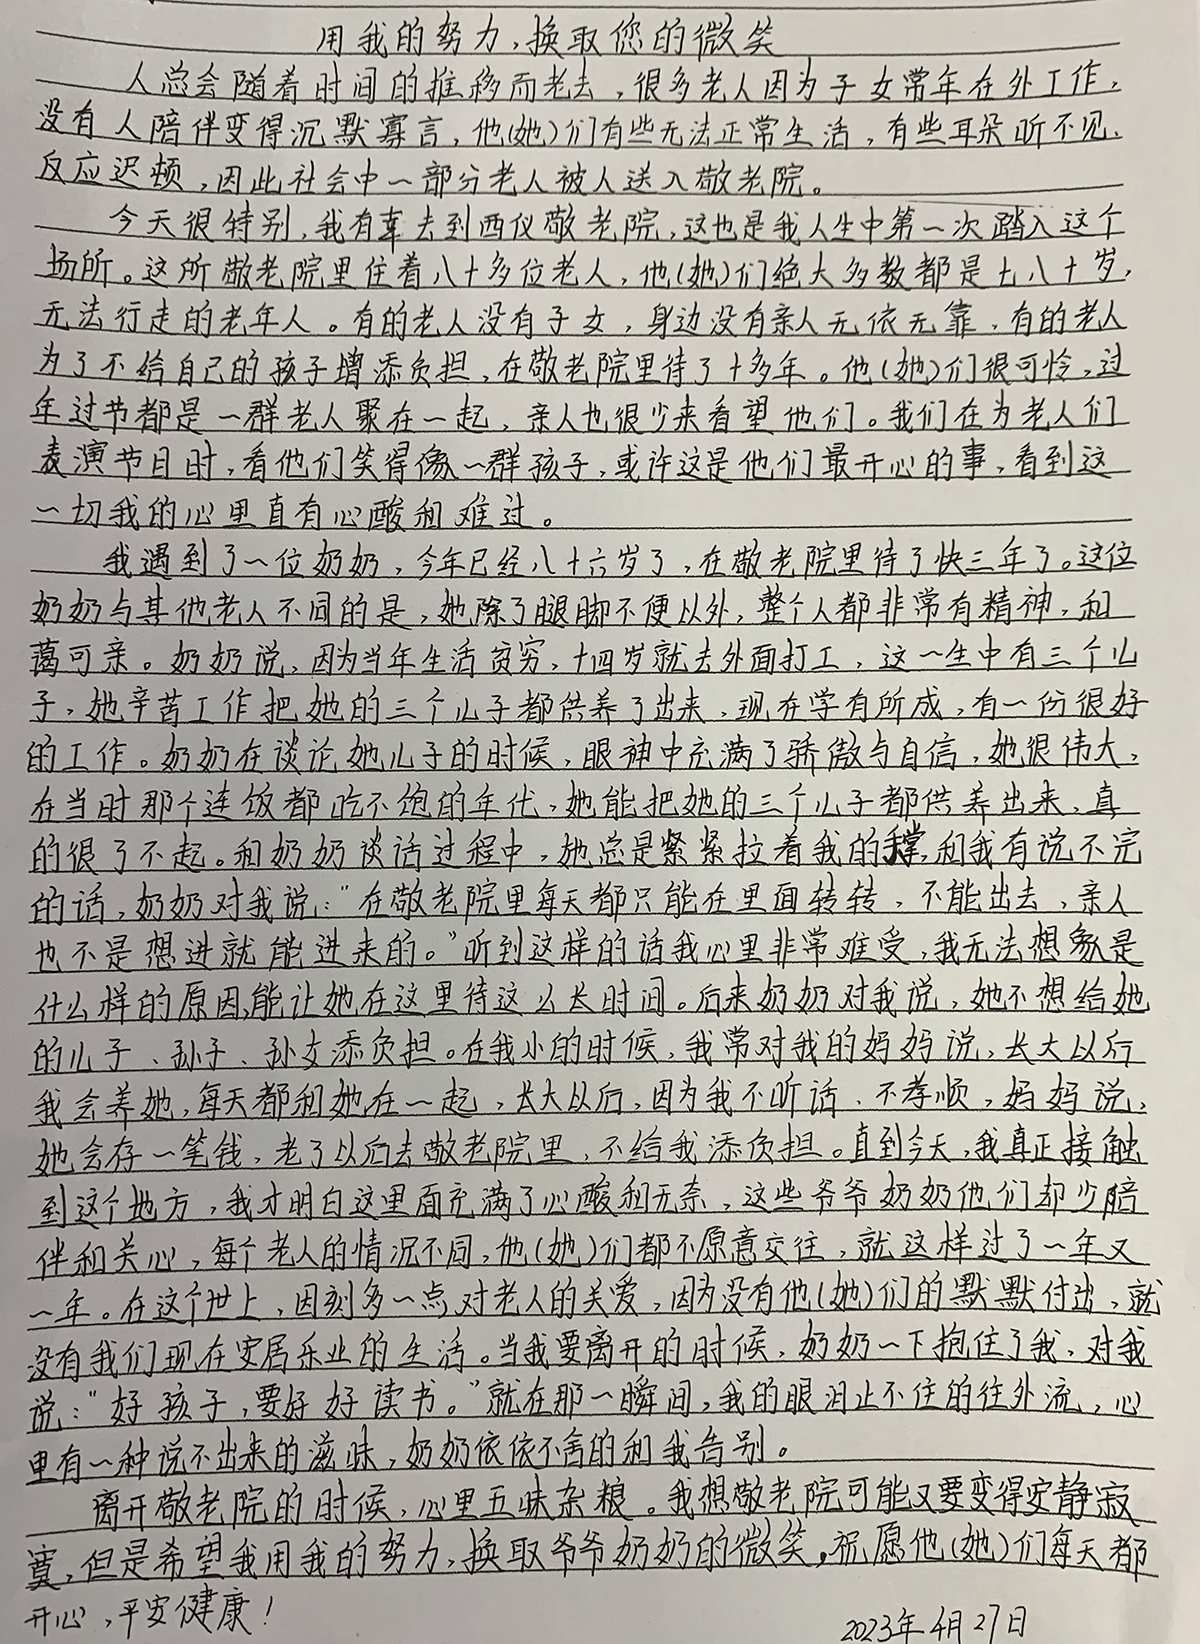 用我的努力,换取您的微笑
人总会随着时间的推移而老去,很多老人因为子女常年在外工作,
没有人陪伴变得沉默寡言,他(她)们有些无法正常生活,有些耳朵听不见、
反应迟顿,因此社会中一部分老人被人送入敬老院。
今天很特别,我有幸去到西仪敬老院,这也是我人生中第一次踏入这个
场所。这所敬老院里住着八十多位老人,他(她)们绝大多数都是七八十岁,
无法行走的老年人。有的老人没有子女,身边没有亲人无依无靠,有的老人
为了不给自己的孩子增添负担,在敬老院里待了十多年。他(她)们很可怜,过
年过节都是一群老人聚在一起,亲人也很少来看望他们。我们在为老人们
表演节目时,看他们笑得像一群孩子,或许这是他们最开心的事,看到这
一切我的心里直有心酸和难过。
我遇到了一位奶奶,今年已经八十六岁了,在敬老院里待了快三年了。这位
奶奶与其他老人不同的是,她除了腿脚不便以外,整个人都非常有精神,和
蔼可亲。奶奶说,因为当年生活贫穷,十四岁就去外面打工,这一生中有三个儿
子,她辛苦工作把她的三个儿子都供养了出来,现在学有所成,有一份很好
的工作。奶奶在谈论她儿子的时候,眼神中充满了骄傲与自信,她很伟大,
在当时那个连饭都吃不饱的年代,她能把她的三个儿子都供养出来,真
的很了不起。和奶奶谈话过程中,她总是紧紧拉着我的掌,和我有说不完
的话,奶奶对我说:"在敬老院里每天都只能在里面转转,不能出去,亲人
也不是想进就能进来的。"听到这样的话我心里非常难受,我无法想象是
什么样的原因,能让她在这里待这么长时间。后来奶奶对我说,她不想给她
的儿子、孙子、孙女添负担。在我小的时候,我常对我的妈妈说,长大以后
我会养她,每天都和她在一起,长大以后,因为我不听话、不孝顺,妈妈说,
她会存一笔钱,老了以后去敬老院里,不给我添负担。直到今天,我真正接触
到这个地方,我才明白这里面充满了心酸和无奈,这些爷爷奶奶他们却少陪
伴和关心,每个老人的情况不同,他(她)们都不愿意交往,就这样过了一年又
一年。在这个世上,因刻多一点对老人的关爱,因为没有他(她)们的默默付出,就
没有我们现在安居乐业的生活。当我要离开的时候,奶奶一下抱住了我,对我
说:"好孩子,要好好读书。"就在那一瞬间,我的眼泪止不住的往外流,心
里有一种说不出来的滋味,奶奶依依不舍的和我告别。
离开敬老院的时候,心里五味杂粮。我想敬老院可能又要变得安静寂
寞,但是希望我用我的努力,换取爷爷奶奶的微笑,祝愿他(她)们每天都
开心,平安健康!
2023年4月27日